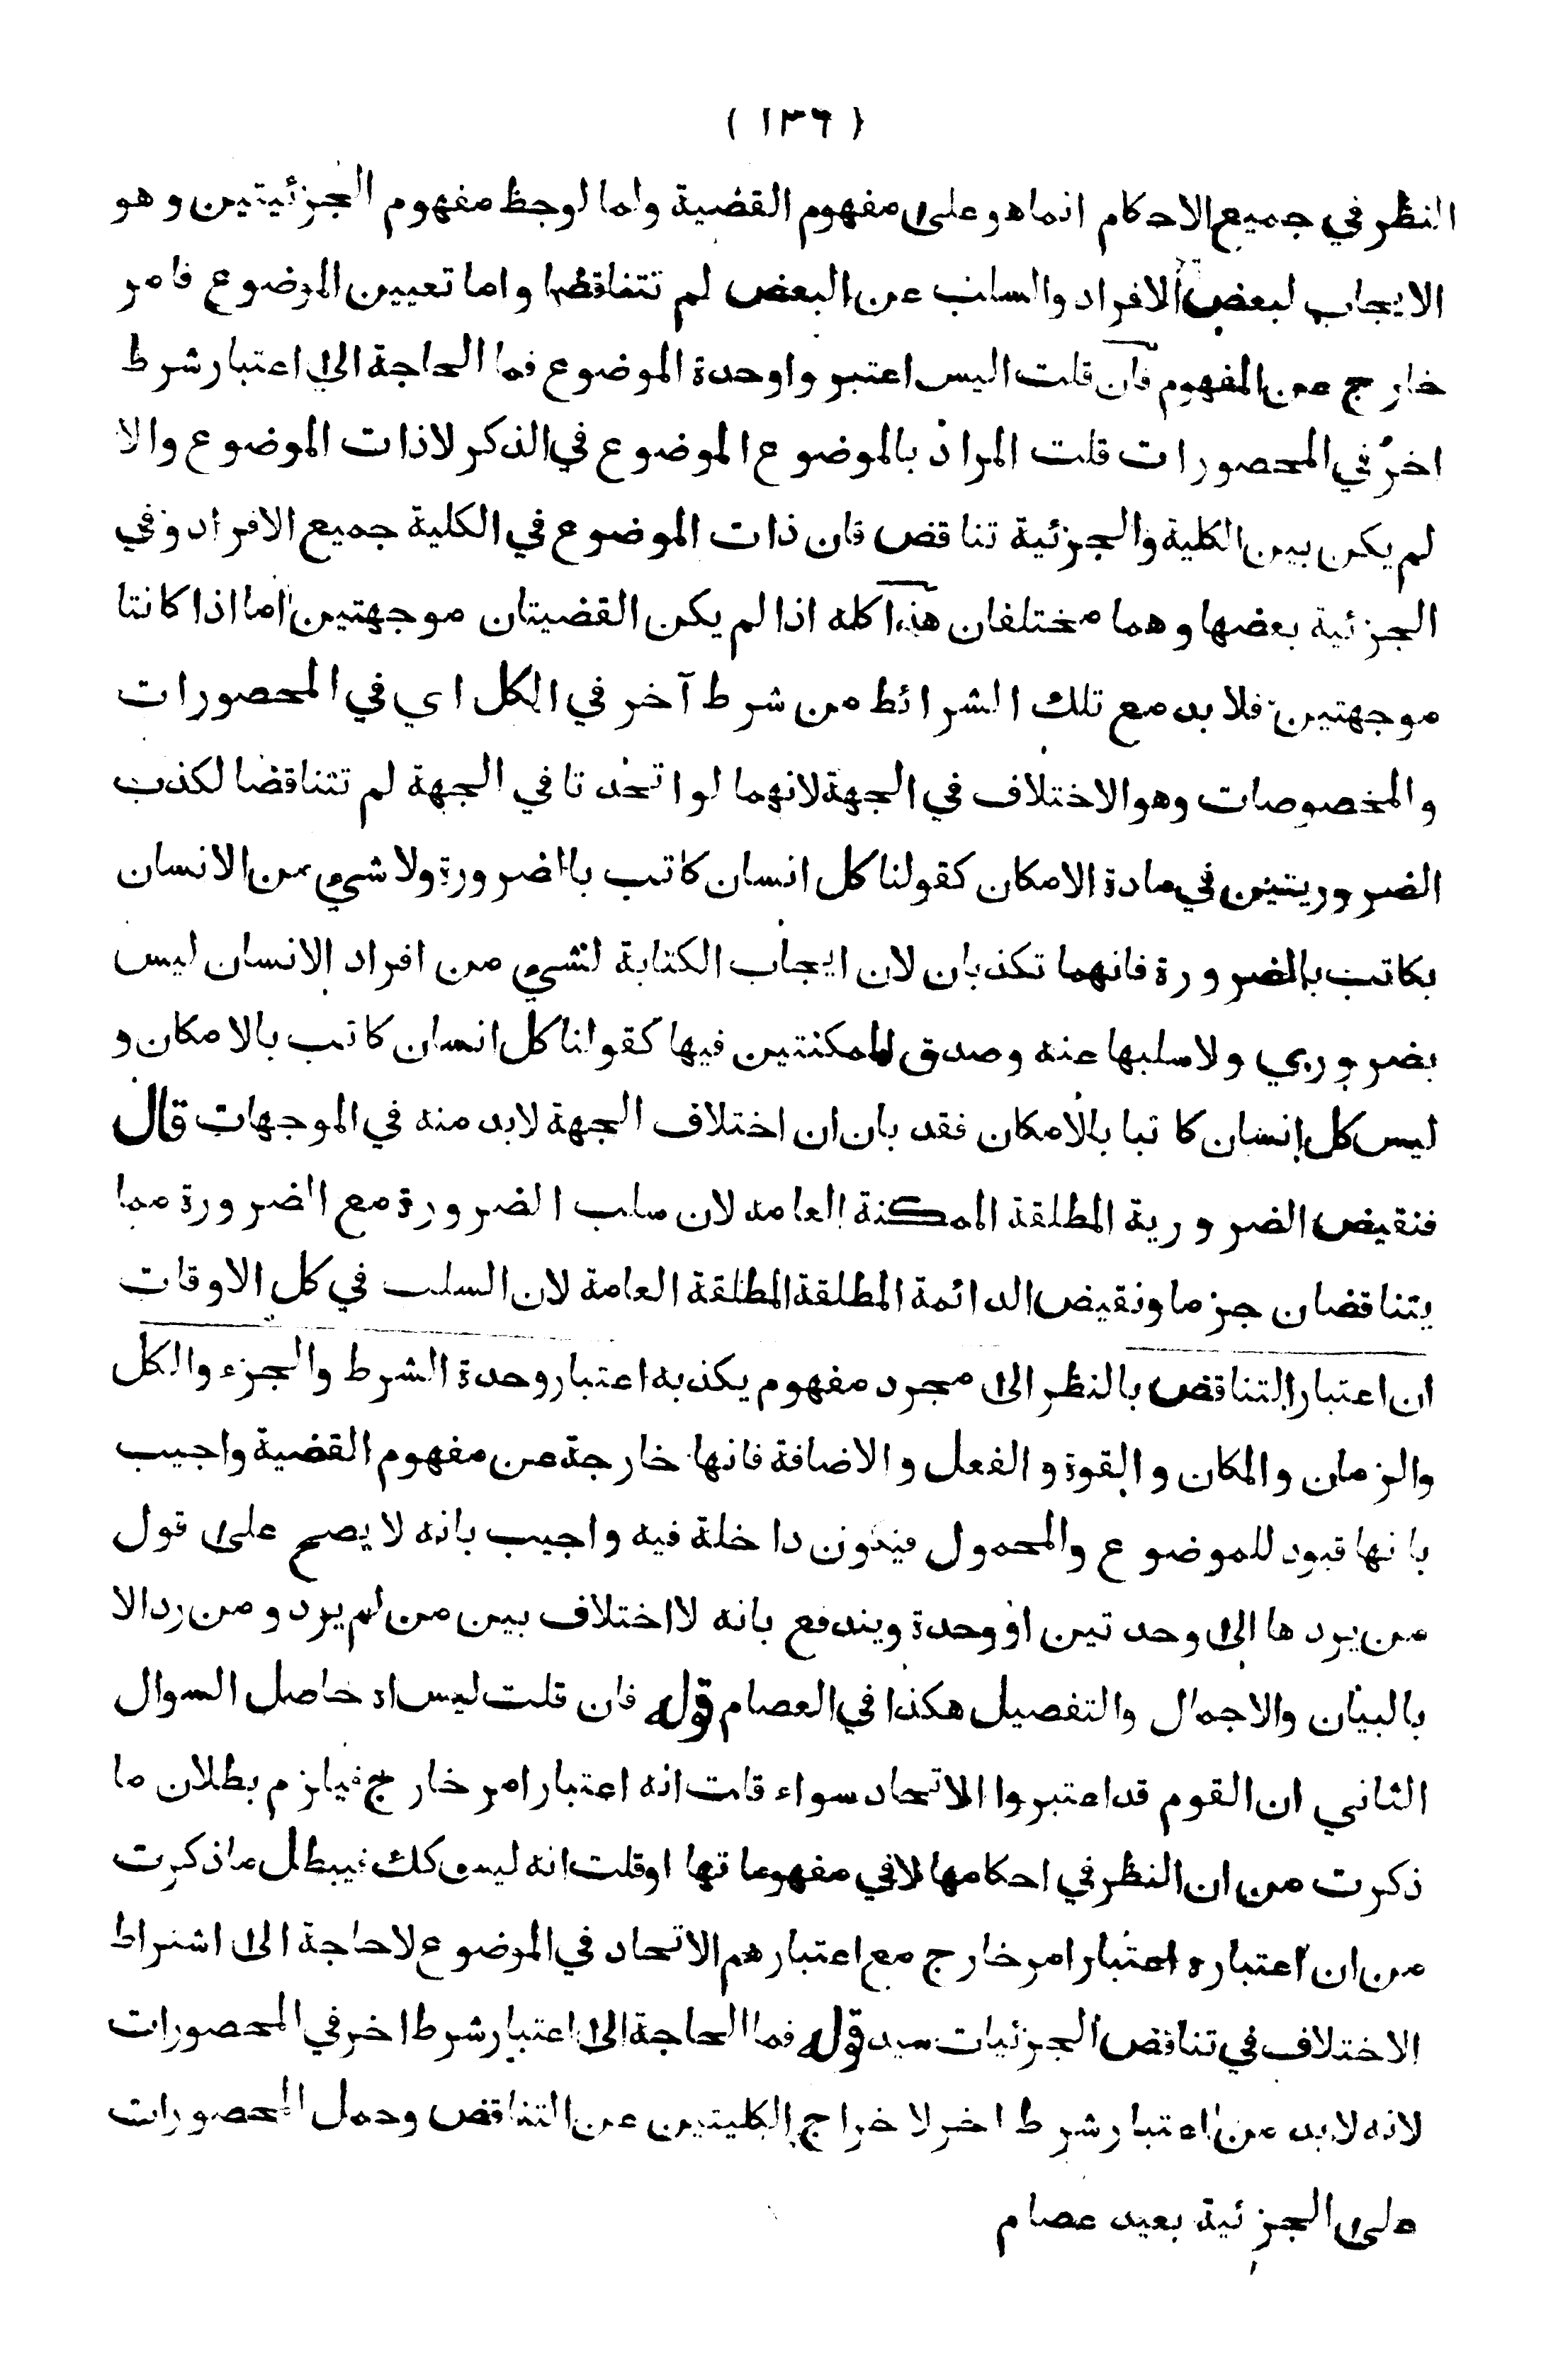 ( ١٣٦ )
النظر في جميع الاحكام انما هو على مفهوم القضية واما لوحظ مفهوم الجزئيتين و هو
الايجاب لبعض الافراد والسلب عن البعض لم تتناقضا واما تعيين الموضوع فامر
خارج عن المفهوم فان قلت اليس اعتبر واوحدة الموضوع فما الحاجة الى اعتبار شرط
اخر في المحصورات قلت المراد بالموضوع الموضوع في الذكر لاذات الموضوع والا
لم يكن بين الكلية والجزئية تناقض فان ذات الموضوع في الكلية جميع الافراد وفي
الجزئية بعضها وهما مختلفان هذا كله اذا لم يكن القضيتان موجهتين اما اذا كانتا
موجهتين فلا بد مع تلك الشرائط من شرط آخر في الكل اي في المحصورات
والمخصوصات وهو الاختلاف في الجهة لانهما لو اتحد تا في الجهة لم تتناقضا لكذب
الضروريتين في مادة الامكان كقولنا كل انسان كاتب بالضرورة ولا شيء من الانسان
بكاتب بالضرورة فانهما تكذبان لان ايجاب الكتابة لشيء من افراد الانسان ليس
بضروري ولا سلبها عنه وصدق الممكنتين فيها كقولنا كل انسان كاتب بالامكان و
ليس كل انسان كاتبا بالامكان فقد بان ان اختلاف الجهة لابد منه في الموجهات قال
فنقيض الضرورية المطلقة الممكنة العامه لان سلب الضرورة مع الضرورة مما
يتناقضان جزما ونقيض الدائمة المطلقة المطلقة العامة لان السلب في كل الاوقات
ان اعتبار التناقض بالنظر الى مجرد مفهوم يكذبه اعتبار وحدة الشرط والجزء والكل
والزمان والمكان والقوة والفعل والاضافة فانها خارجة عن مفهوم القضية واجيب
بانها قيود للموضوع والمحمول فيكون داخلة فيه واجيب بانه لا يصح على قول
من يردها الى وحدتين او وحدة ويندفع بانه لا اختلاف بين من لم يرد و من رد الا
بالبيان والاجمال والتفصيل هكذا في العصام قوله فان قلت ليس اه حاصل السوال
الثاني ان القوم قد اعتبروا الاتحاد سواء قلت انه اعتبار امر خارج فيلزم بطلان ما
ذكرت من ان النظر في احكامها لا في مفهوماتها او قلت انه ليس كك فيبطل ما ذكرت
من ان اعتباره اعتبار امر خارج مع اعتبارهم الاتحاد في الموضوع لا حاجة الى اشتراط
الاختلاف في تناقض الجزئيات سيد قوله فما الحاجة الى اعتبار شرط اخر في المحصورات
لانه لابد من اعتبار شرط اخر لاخراج الكليتين عن التناقض وحمل المحصورات
على الجزئية بعيد عصام